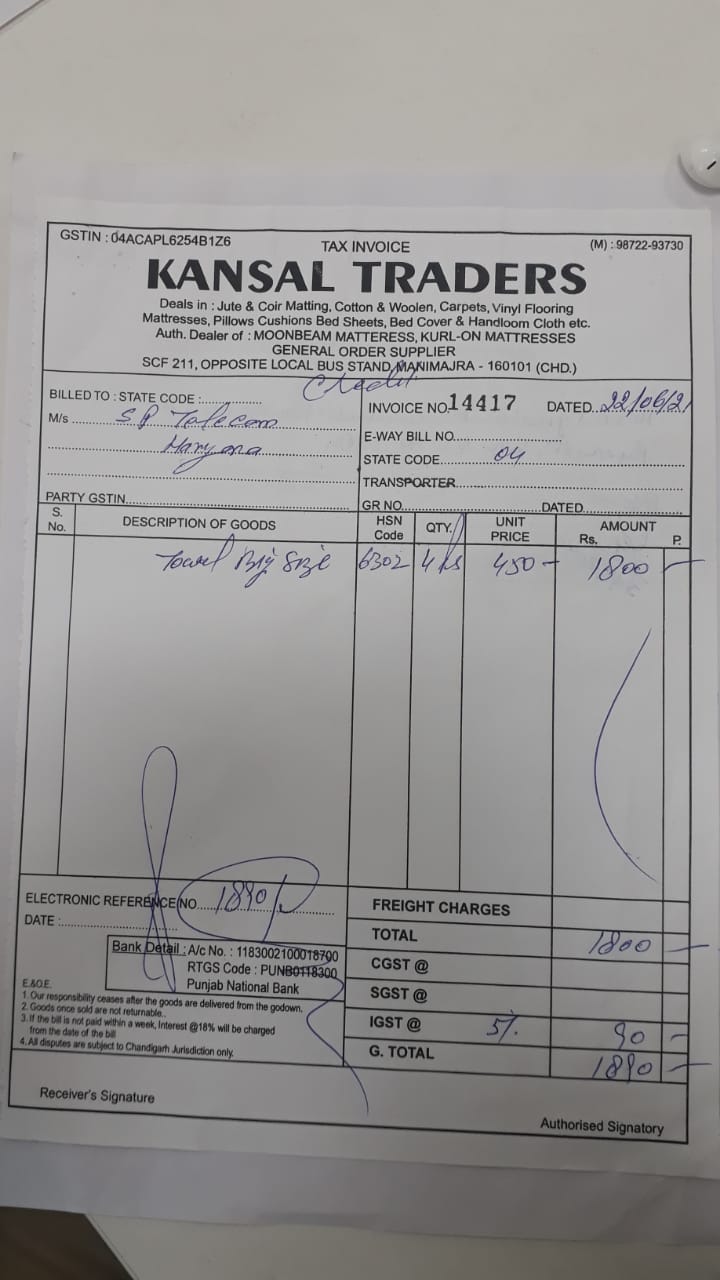 GSTIN : 04ACAPL6254B1Z6 TAX INVOICE (M) : 98722-93730
KANSAL TRADERS
Deals in : Jute & Coir Matting, Cotton & Woolen, Carpets, Vinyl Flooring
Mattresses, Pillows Cushions Bed Sheets, Bed Cover & Handloom Cloth etc.
Auth. Dealer of : MOONBEAM MATTERESS, KURL-ON MATTRESSES
GENERAL ORDER SUPPLIER
SCF 211, OPPOSITE LOCAL BUS STAND, MANIMAJRA - 160101 (CHD.)
Credit
BILLED TO : STATE CODE :
M/s S P Telecom
Haryana
PARTY GSTIN
INVOICE NO. 14417 DATED. 22/06/21
E-WAY BILL NO.
STATE CODE 04
TRANSPORTER
GR NO. DATED
S. No. DESCRIPTION OF GOODS HSN Code QTY. UNIT PRICE AMOUNT Rs. P.
Towel Big Size 6302 4 Ps 450 - 1800 -
ELECTRONIC REFERENCE NO. 1890/-
DATE :
Bank Detail : A/c No. : 1183002100018700
RTGS Code : PUNB0118300
Punjab National Bank
E.&O.E.
1. Our responsibility ceases after the goods are delivered from the godown.
2. Goods once sold are not returnable..
3. If the bill is not paid within a week, Interest @18% will be charged
from the date of the bill
4. All disputes are subject to Chandigarh Jurisdiction only.
FREIGHT CHARGES
TOTAL 1800 -
CGST @
SGST @
IGST @ 5% 90 -
G. TOTAL 1890 -
Receiver's Signature
Authorised Signatory